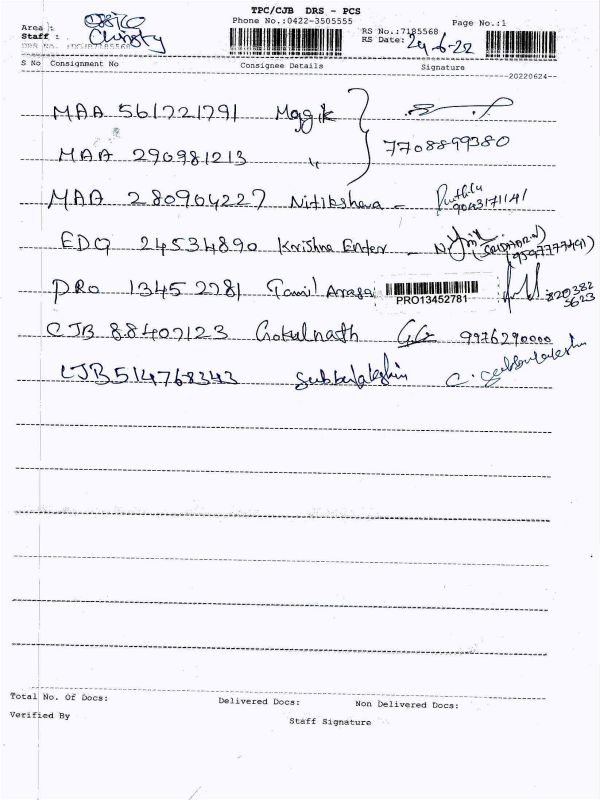 TPC/CJB DRS - PCS
Phone No.:0422-3505555
Page No.:1
Area :
Staff : Christy
DRS No. :DCJB7185568
RS No.:7185568
RS Date: 24-6-22
S No Consignment No Consignee Details Signature
--20220624--
MAA 561721791 Maggik
7708899380
MAA 290981213 "
MAA 280904227 Nitikshana - 9043171141
EDQ 24534890 Krishna Enter -
PRO 13452781 Tamil Arasai PRO13452781 820382 5623
CJB 88407123 Gokulnath 9976290000
CJB 514768343 Subbulakshmi C. Subbulakshmi
Total No. Of Docs: Delivered Docs: Non Delivered Docs:
Verified By Staff Signature